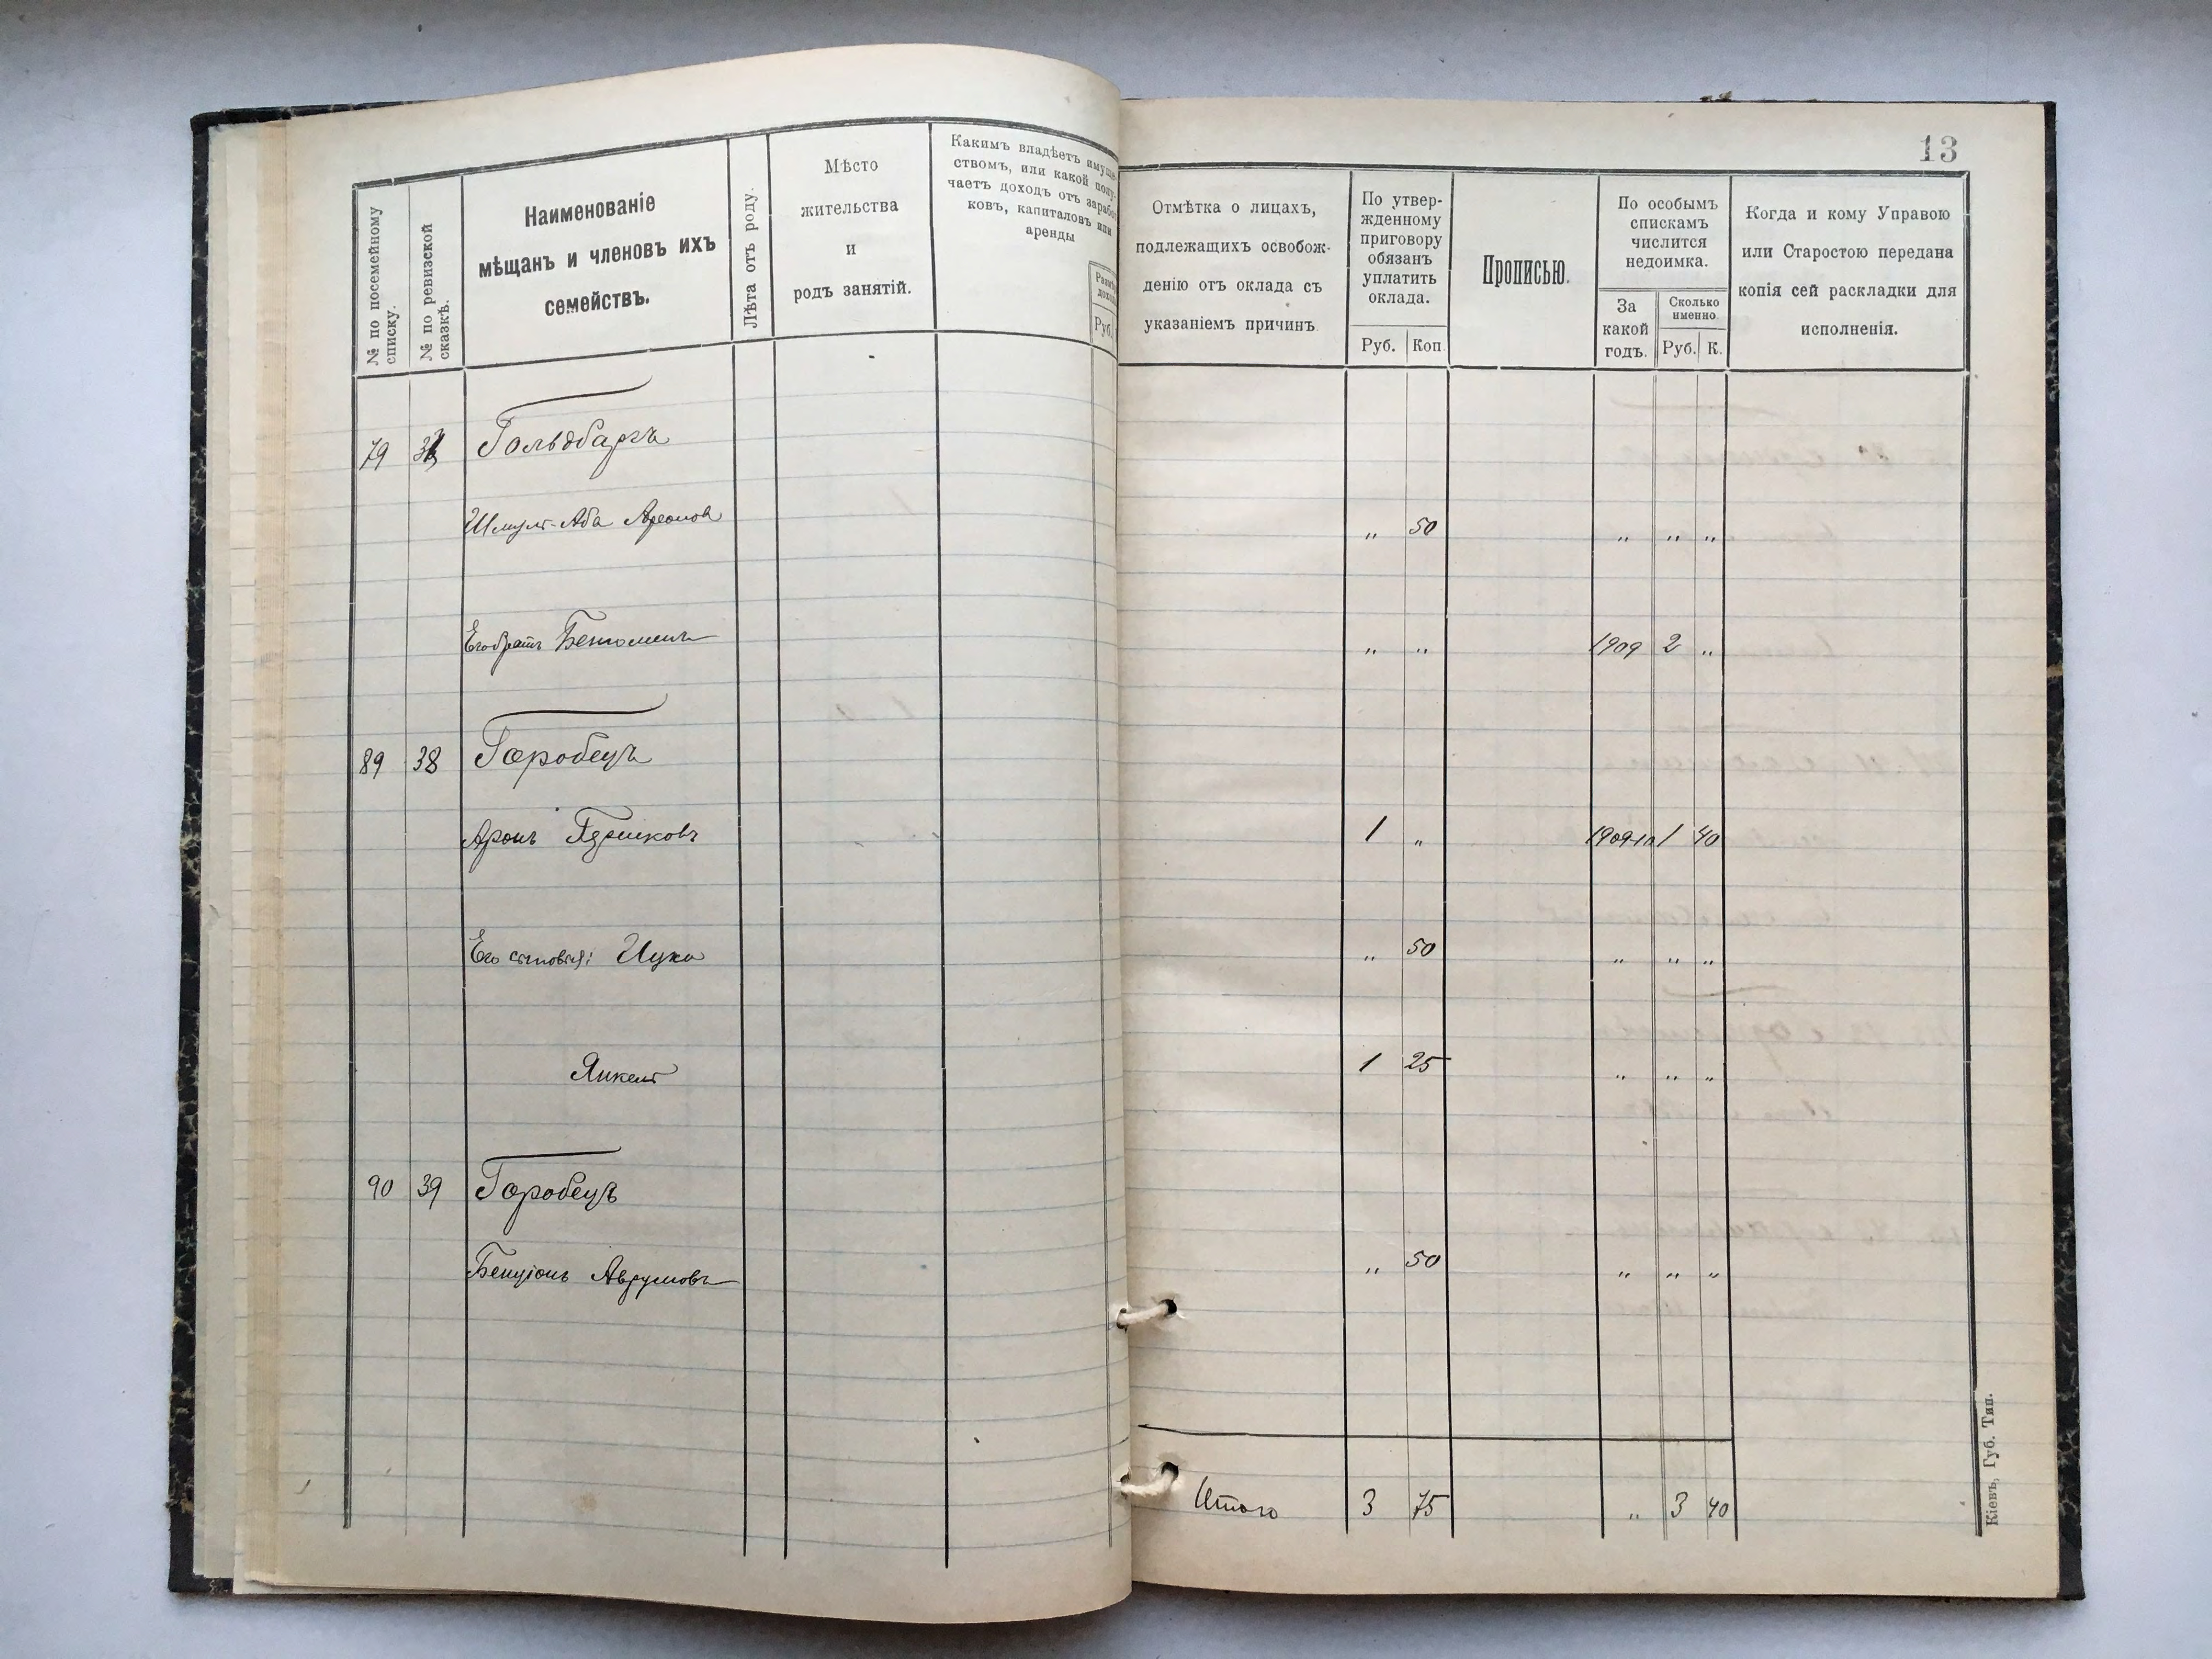 № по посемейному
списку.
№ по ревизской
сказкѣ.
Наименованіе
мѣщанъ и членовъ ихъ
семействъ.
Лѣта отъ роду.
Мѣсто
жительства
и
родъ занятій.
Какимъ владѣетъ имуще-
ствомъ, или какой полу-
чаетъ доходъ отъ зарабо-
ковъ, капиталовъ или
аренды
Руб.
13
Отмѣтка о лицахъ,
подлежащихъ освобож-
денію отъ оклада съ
указаніемъ причинъ.
По утвер-
жденному
приговору
обязанъ
уплатить
оклада.
Руб. Коп.
Прописью.
По особымъ
спискамъ
числится
недоимка.
За
какой
годъ.
Сколько
именно.
Руб. К.
Когда и кому Управою
или Старостою передана
копія сей раскладки для
исполненія.
79 Гольдбаръ
Шмуль-Аба Ароновъ „ 50 „ „ „
Его братъ Беніоминъ „ „ 1909 2 „
89 38 Горобецъ
Аронъ Гершковъ 1 „ 1909-10 1 40
Его сыновья: Ицко „ 50 „ „ „
Янкель 1 25 „ „ „
90 39 Горобецъ
Бенціонъ Аврумовъ „ 50 „ „ „
Итого 3 75 „ 3 40
Кіевъ, Губ. Тип.